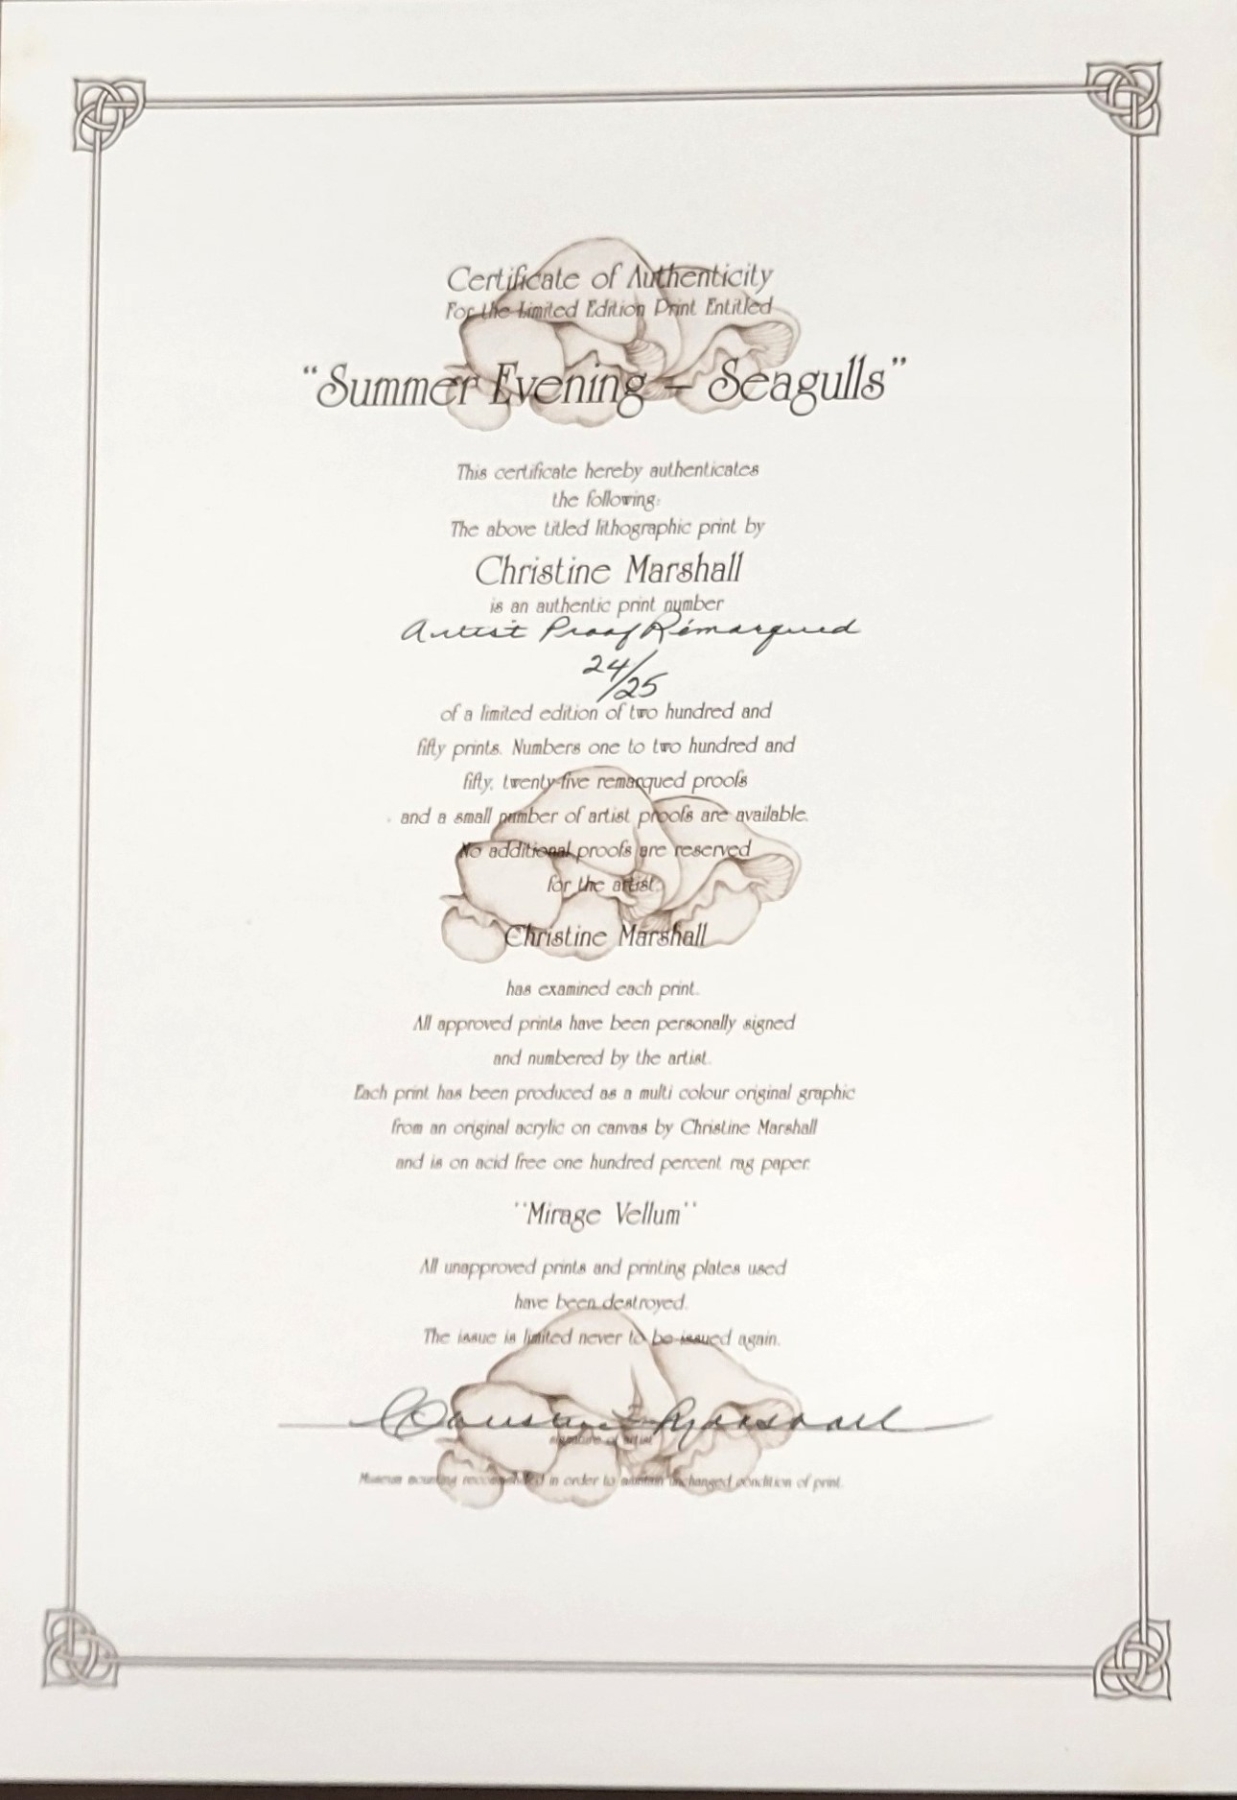 Certificate of Authenticity
For the Limited Edition Print Entitled
“Summer Evening – Seagulls”
This certificate hereby authenticates
the following:
The above titled lithographic print by
Christine Marshall
is an authentic print number
Artist Proof Remarqued
24/25
of a limited edition of two hundred and
fifty prints. Numbers one to two hundred and
fifty, twenty-five remarqued proofs
and a small number of artist proofs are available.
No additional proofs are reserved
for the artist.
Christine Marshall
has examined each print.
All approved prints have been personally signed
and numbered by the artist.
Each print has been produced as a multi colour original graphic
from an original acrylic on canvas by Christine Marshall
and is on acid free one hundred percent rag paper.
"Mirage Vellum"
All unapproved prints and printing plates used
have been destroyed.
The issue is limited never to be issued again.
Christine Marshall
signature of artist
Museum mounting recommended in order to maintain unchanged condition of print.